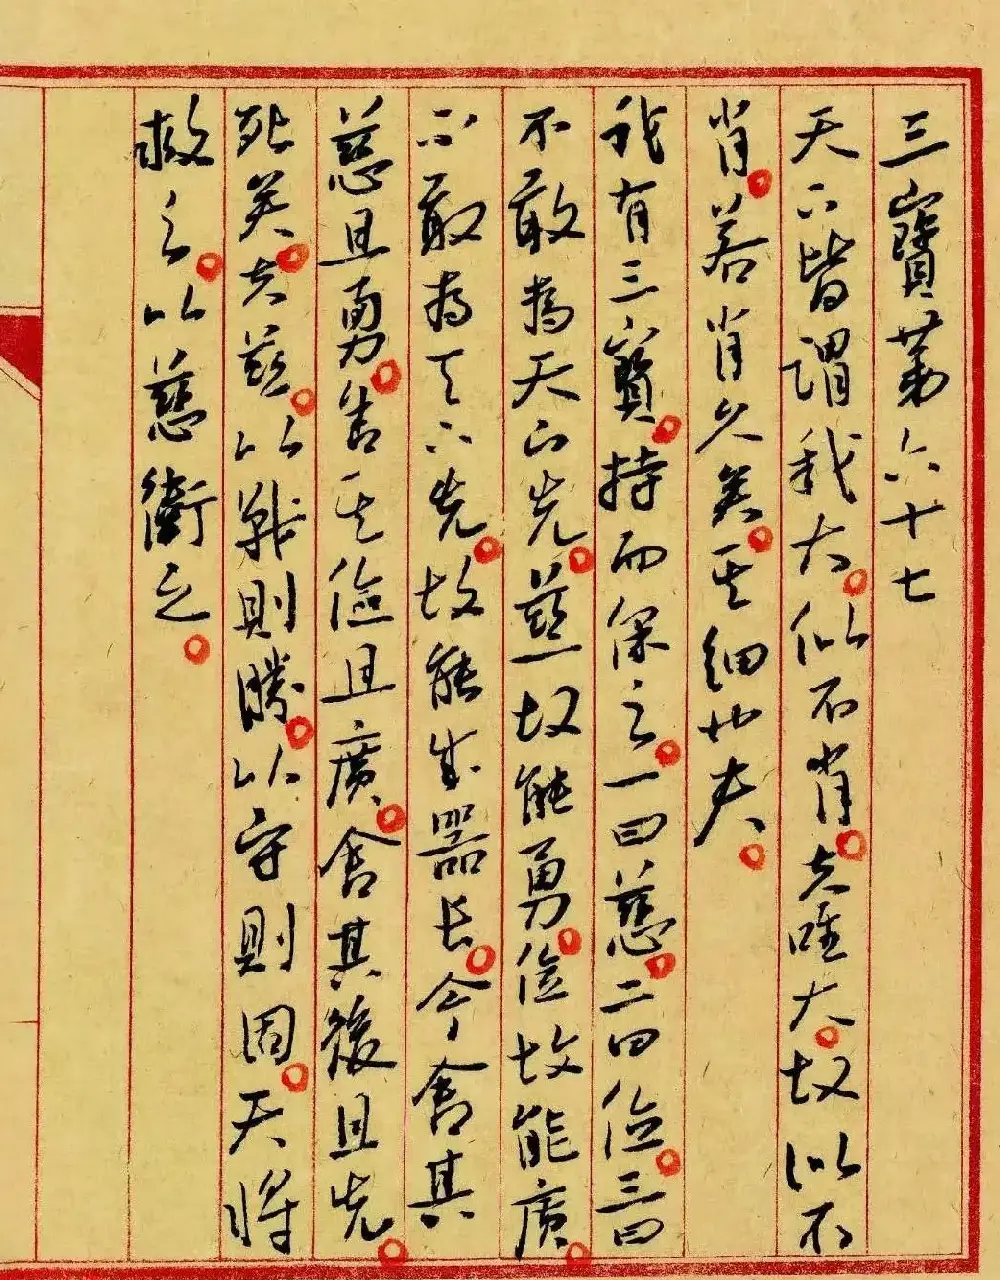 三寶第六十七
天下皆謂我大。似不肖。夫唯大。故似不
肖。若肖久矣。其細也夫。
我有三寶。持而保之。一曰慈。二曰儉。三曰
不敢為天下先。慈故能勇。儉故能廣。
不敢為天下先。故能成器長。今舍其
慈且勇。舍其儉且廣。舍其後且先。
死矣。夫慈。以戰則勝。以守則固。天將
救之。以慈衛之。